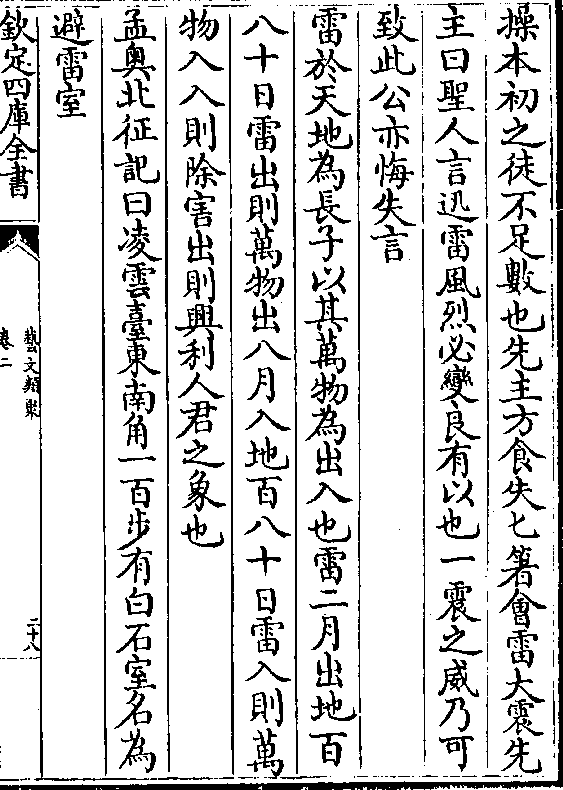 操本初之徒不足數也先主方食失匕箸會雷大震先
主曰聖人言迅雷風烈必變良有以也一震之威乃可
致此公亦悔失言
雷於天地為長子以其萬物為出入也雷二月出地百
八十日雷出則萬物出八月入地百八十日雷入則萬
物入入則除害出則興利人君之象也
孟奥北征記曰凌雲臺東南角一百步有白石室名為
避雷室
欽定四庫全書
藝文類聚
卷二
二十八